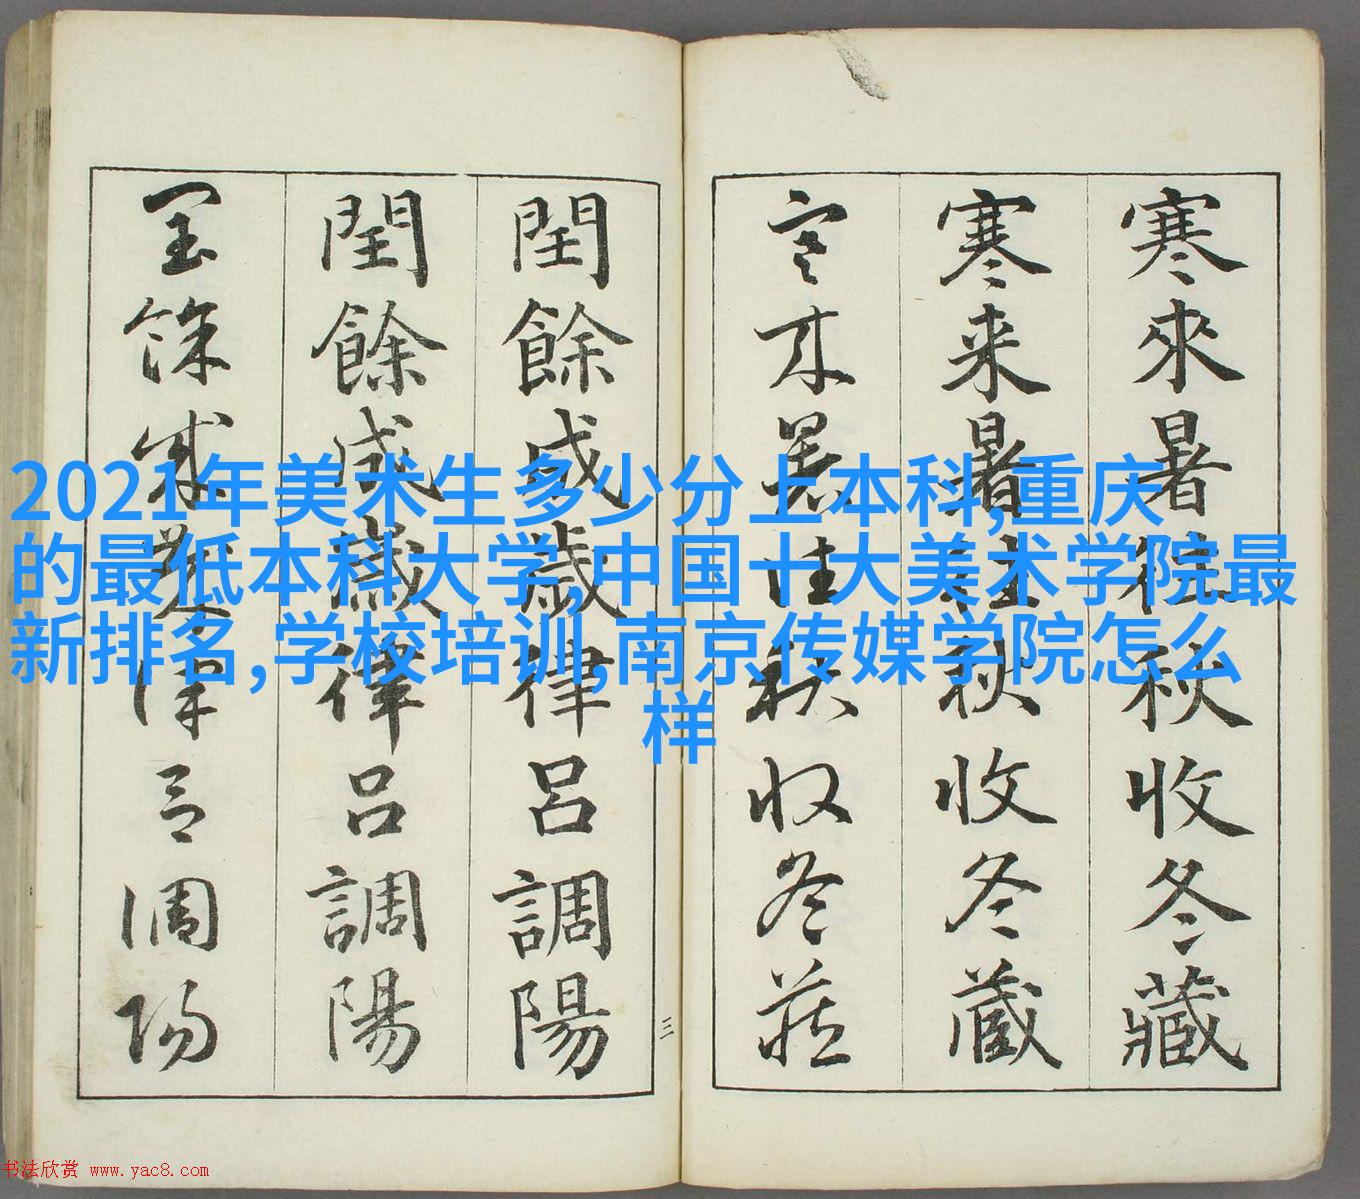 2021年美术生多少分上本科,重庆
的最低本科大学,中国十大美术学院最
新排名,学校培训,南京传媒学院怎么
样
寒來暑往秋收冬藏
寒来暑往秋收冬蔵
寒来暑往秋收冬蔵
三
閏餘成歳律呂調陽
閏餘成歳律呂調陽
閏餘成歳律呂調陽
书法欣赏 www.yac8.com